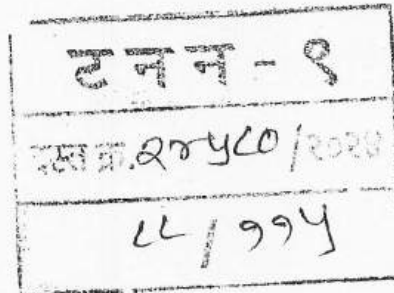 ट न न - ९
दस्त क्र. २४५८०/२०२४
८८/११५